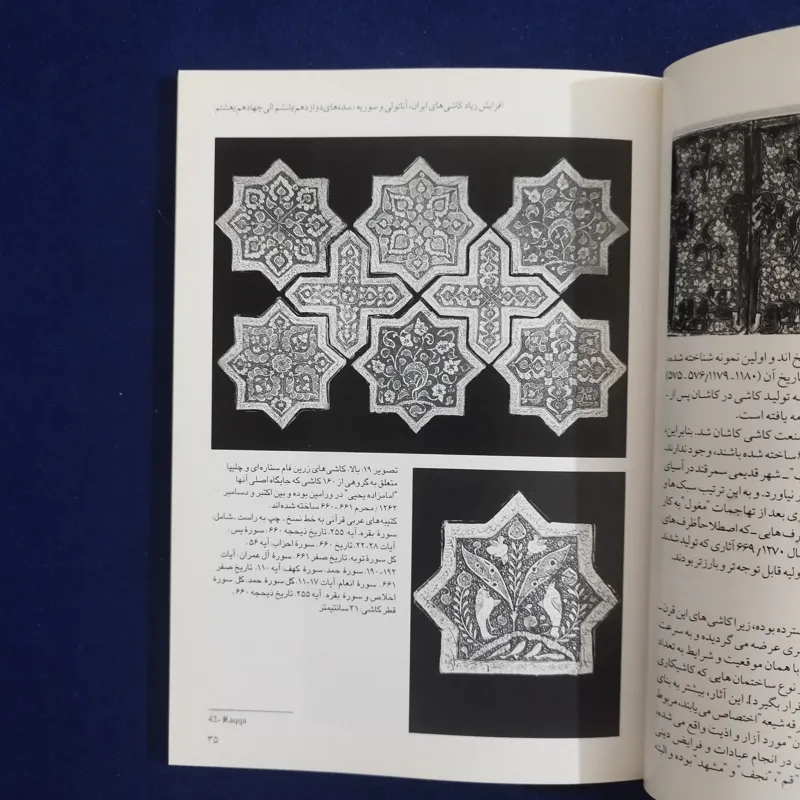 افزایش زیاد کاشی‌های ایران، آناتولی و سوریه: سده‌های دوازدهم/ششم الی چهاردهم/هشتم
تصویر ۱۹: بالا، کاشی‌های زرین فام ستاره‌ای و چلیپا
متعلق به گروهی از ۱۶۰ کاشی که جایگاه اصلی آنها
"امامزاده یحیی" در ورامین بوده و بین اکتبر و دسامبر
۱۲۶۲/ محرم ۶۶۱ ـ ۶۶۰ ساخته شده‌اند.
کتیبه‌های عربی قرآنی به خط نسخ ـ چپ به راست ـ شامل:
سورهٔ بقره، آیه: ۲۵۵، تاریخ ذیحجه ۶۶۰. سورهٔ یس:
آیات ۲۸-۲۲، تاریخ ۶۶۰. سورهٔ احزاب، آیه ۵۶.
کل سورهٔ توبه، تاریخ صفر ۶۶۱. سورهٔ آل عمران: آیات
۱۹۲-۱۹۰. سورهٔ حمد، سورهٔ کهف: آیه ۱۱۰، تاریخ صفر
۶۶۱. سورهٔ انعام: آیات ۱۷-۱۱، کل سورهٔ حمد، کل سورهٔ
اخلاص و سورهٔ بقره، آیه ۲۵۵، تاریخ ذیحجه ۶۶۰.
قطر کاشی: ۳۱ سانتیمتر
42- Raqqa
۳۵
خ اند و اولین نمونه شناخته شده،
تاریخ آن (۱۱۸۰ـ۵۷۶/۱۱۷۹ـ۵۷۵)
ه تولید کاشی در کاشان پس از ـ
مه یافته است.
صنعت کاشی کاشان شد. بنابراین،
ساخته شده باشند، وجود ندارند.
ـ شهر قدیمی سمرقند در آسیای
نیاورد. و به این ترتیب سبک‌ها و
ری بعد از تهاجمات "مغول" به کار
رف‌هایی ـ که اصطلاحاً ظرف‌های
سال ۱۲۷۰/ ۶۶۹ آثاری که تولید شدند
ولیه قابل توجه‌تر و بارزتر بودند.
سترده بوده، زیرا کاشی‌های این قرن ـ
ری عرضه می گردیده و به سرعت
با همان موقعیت و شرایط به تعداد
نوع ساختمان هایی که کاشیکاری
قرار بگیرد]. این آثار، بیشتر به بنای
قه شیعه" اختصاص می‌یابند، مربوط
ن" مورد آزار و اذیت واقع می‌شده،
ی در انجام عبادات و فرایض دینی
"قم"، "نجف" و "مشهد" بوده و البته